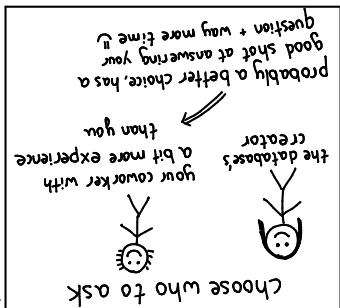 choose who to ask
the database's
creator
your coworker with
a bit more experience
than you
probably a better choice, has a
good shot at answering your
question + way more time